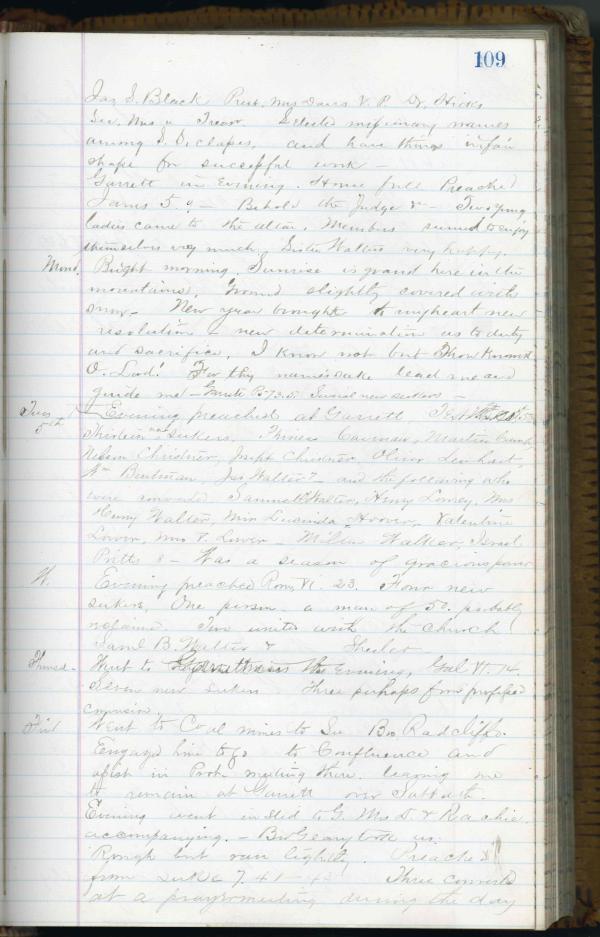 109
Jas. S. Black Prest. Mrs Davis V. P. Dr. Hicks
Sec. Mrs Treas. Selected missionary names
among S. S. classes, and have things in fair
shape for successful work –
Garrett in Evening. House full Preached
James 5.9 – Behold the Judge &c – Two young
ladies came to the altar. Members seemed to enjoy
themselves very much. Sister Walters very happy.
Mond. Bright morning. Sunrise is grand here in the
mountains. Ground slightly covered with
snow – New year brought to my heart new
resolutions – new determination as to duty
and sacrifice. I know not but Thou knowest
O. Lord! For thy name's sake lead me and
guide me –
Tues 5th Evening preached at Garrett,
Thirteen new seekers.
Nelson Christner, Joseph Christner, Oliver
Wm Jas. Walter – and the following who
were Walter, Henry Mrs
Henry Walter, Miss Lucinda Hoover, Valentine
Lower, Mrs V. Lower – Milton Walker, Israel
8 – Was a season of gracious power
W. Evening preached Rom. VI. 23. Four new
seekers, One person – a man of 50. probably
Two united with the church
Saml B. Walter &
Thursd. Went to in the evening, Gal VI. 14.
Seven new seekers Three perhaps four professed
conversion.
Frid Went to Coal mines to See Bro Radcliffe.
Engaged him to go to Confluence and
assist in Prot. meeting there. leaving me
to remain at Garrett over Sabbath.
Evening went in sled to G. Mrs S. & Rachie
accompanying. – Bro Geary took us.
Rough but ran lightly. Preached
from Luke 7. 41 – Three converts
at a prayermeeting during the day